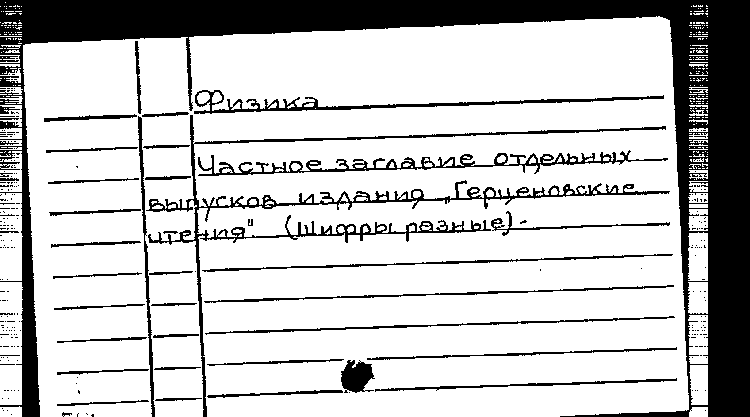 Физика
Частное заглавие отдельных
выпусков издания „Герценовские
чтения". (Шифры разные).-